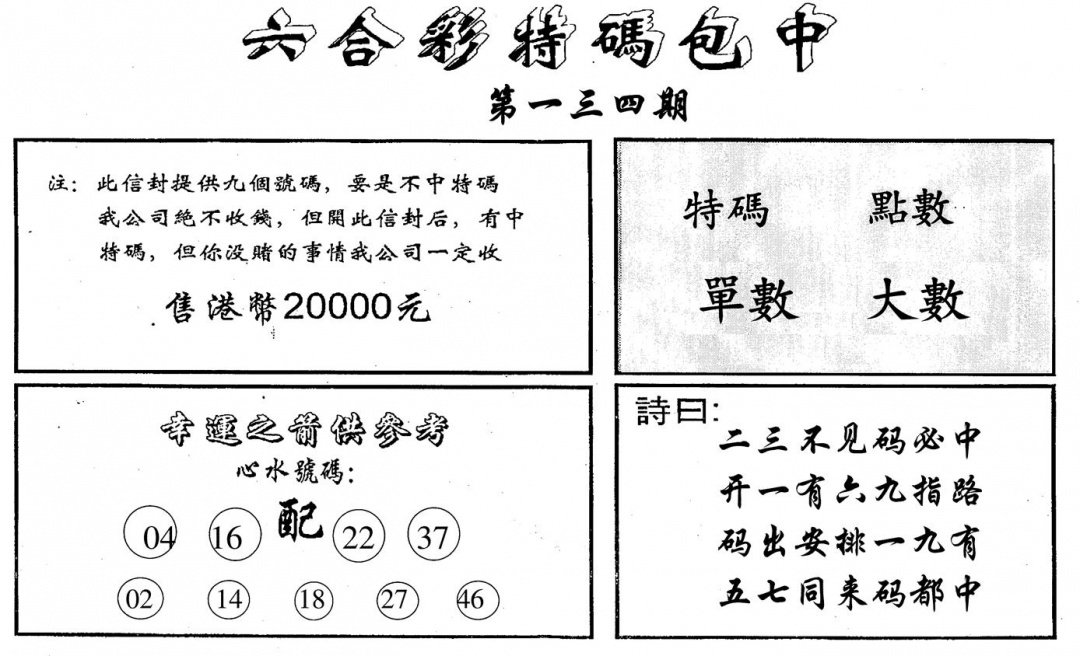 六合彩特碼包中
第一三四期
注：此信封提供九個號碼，要是不中特碼
我公司絕不收錢，但開此信封后，有中
特碼，但你没賭的事情我公司一定收
售港幣20000元
特碼 點數
單數 大數
幸運之箭供參考
心水號碼：
04 16 配 22 37
02 14 18 27 46
詩曰：
二三不见码必中
开一有六九指路
码出安排一九有
五七同来码都中